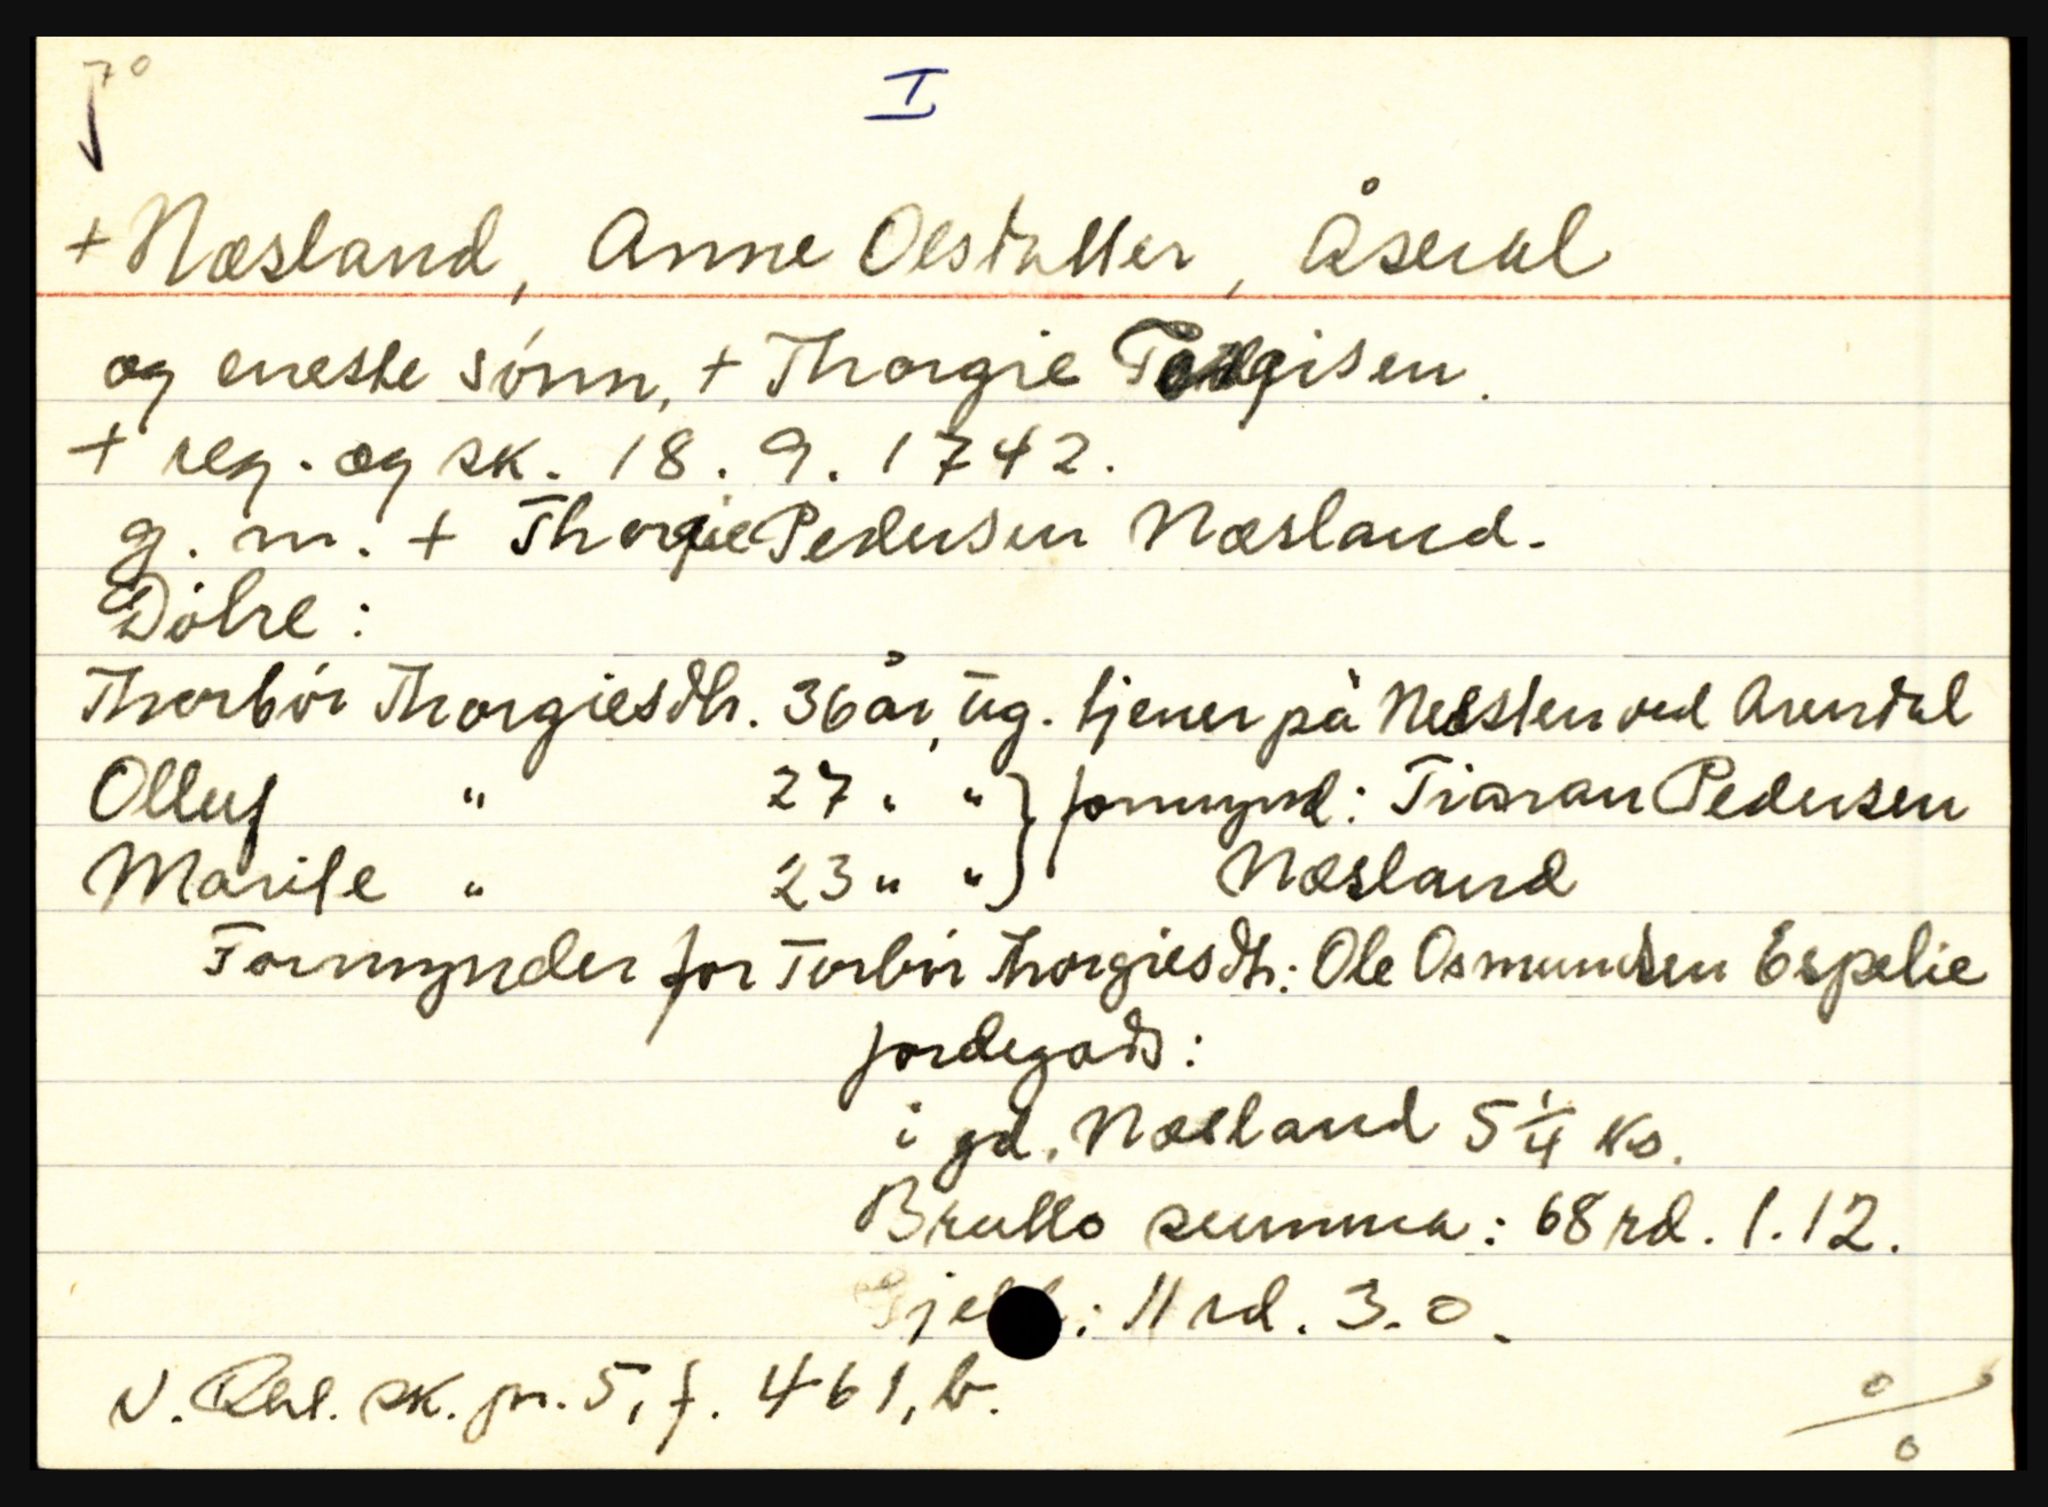 I
+ Næsland, Anne Olsdatter, Åseral
og eneste sønn, + Thorgie Torgisen.
+ reg. og sk. 18. 9. 1742.
g. m. + Thorgie Pedersen Næsland.
Døtre:
Thorbør Thorgiesdtr. 36 år, ug. tjener på Nesten ved Arendal
Olluf " 27 " " } formynd: Tiaran Pedersen
Marite " 23 " " } Næsland
Formynder for Torbør Thorgiesdtr: Ole Osmundsen Espelie
jordegods:
i gd. Næsland 5 1/4 ks.
Brutto summa: 68 rd. 1. 12.
Gjeld: 11 rd. 3. 0.
N. Rbl. sk. pr. 5, f. 461, b.